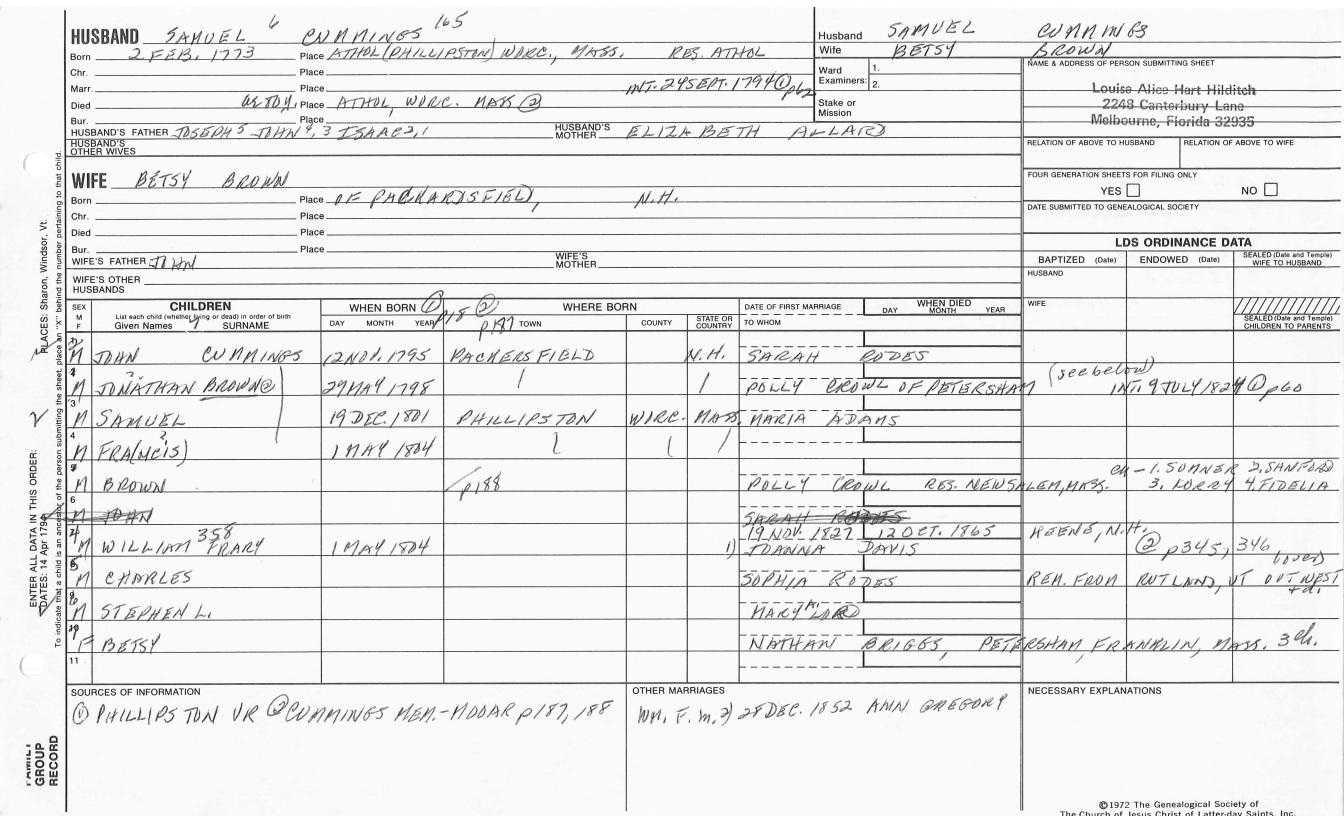 HUSBAND SAMUEL 6 CUMMINGS 165
Born 2 FEB. 1773 Place ATHOL (PHILLIPSTON) WORC., MASS. RES. ATHOL
Chr. Place
Marr. Place INT. 24 SEPT. 1794 ① p62
Died Place ATHOL, WORC. MASS ②
Bur. Place
HUSBAND'S FATHER JOSEPH 5 JOHN 4, 3 ISAAC 2, 1 HUSBAND'S MOTHER ELIZABETH ALLARD
HUSBAND'S OTHER WIVES
WIFE BETSY BROWN
Born Place OF PACKARDSFIELD, N.H.
Chr. Place
Died Place
Bur. Place
WIFE'S FATHER JOHN WIFE'S MOTHER
WIFE'S OTHER HUSBANDS
Husband SAMUEL CUMMINGS
Wife BETSY BROWN
Ward Examiners: 1. 2.
Stake or Mission
NAME & ADDRESS OF PERSON SUBMITTING SHEET
Louise Alice Hart Hilditch
2248 Canterbury Lane
Melbourne, Florida 32935
RELATION OF ABOVE TO HUSBAND RELATION OF ABOVE TO WIFE
FOUR GENERATION SHEETS FOR FILING ONLY
YES NO
DATE SUBMITTED TO GENEALOGICAL SOCIETY
LDS ORDINANCE DATA
BAPTIZED (Date) ENDOWED (Date) SEALED (Date and Temple) WIFE TO HUSBAND
HUSBAND
WIFE
SEALED (Date and Temple) CHILDREN TO PARENTS
SEX M F CHILDREN WHEN BORN ① p18 ② p187 WHERE BORN DATE OF FIRST MARRIAGE WHEN DIED
List each child (whether living or dead) in order of birth
Given Names 7 SURNAME DAY MONTH YEAR TOWN COUNTY STATE OR COUNTRY TO WHOM DAY MONTH YEAR
M JOHN CUMMINGS 12 NOV. 1795 PACKERSFIELD N.H. SARAH RODES
M JONATHAN BROWN② 29 MAY 1798 POLLY CROWL OF PETERSHAM (see below) INT. 9 JULY 1824 ① p60
3 M SAMUEL 19 DEC. 1801 PHILLIPSTON WORC. MASS. MARIA ADAMS
4 M FRA(NCIS) ? 1 MAY 1804
M BROWN p188 POLLY CROWL RES. NEW SALEM, MASS. CH - 1. SUMNER 2. SANFORD
3. LORRY 4. FIDELIA
6 M JOHN SARAH RODES
M WILLIAM 358 FRARY 1 MAY 1804 19 NOV. 1827 12 OCT. 1865 KEENE, N.H.
1) JOANNA DAVIS ② p345, 346 (over)
M CHARLES SOPHIA RODES REM. FROM RUTLAND, VT OUT WEST + d.
M STEPHEN L. MARY A. LORD
F BETSY NATHAN BRIGGS, PETERSHAM, FRANKLIN, MASS. 3 ch.
11
SOURCES OF INFORMATION
① PHILLIPSTON VR ② CUMMINGS MEM.-MOOAR p187, 188
OTHER MARRIAGES
WM. F. m. 2) 28 DEC. 1852 ANN GREGORY
NECESSARY EXPLANATIONS
©1972 The Genealogical Society of
The Church of Jesus Christ of Latter-day Saints, Inc.
ENTER ALL DATA IN THIS ORDER:
DATES: 14 Apr 1794
PLACES: Sharon, Windsor, Vt.
To indicate that a child is an ancestor of the person submitting the sheet, place an "X" behind the number pertaining to that child.
FAMILY GROUP RECORD